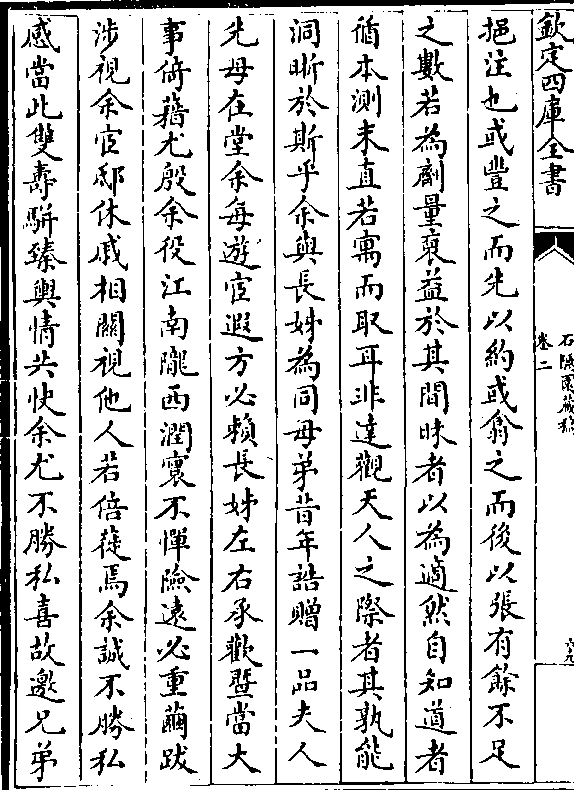 欽定四庫全書
石隱園藏稿
卷二
六十九
挹注也或豐之而先以約或翕之而後以張有餘不足
之數若為劑量裒益於其間昧者以為適然自知道者
循本測末直若寓而取耳非達觀天人之際者其孰能
洞晰於斯乎余與長姊為同母弟昔年誥贈一品夫人
先母在堂余每遊宦遐方必賴長姊左右承歡暨當大
事倚藉尤殷余役江南隴西潤寰不憚險遠必重繭跋
涉視余宦邸休戚相關視他人若倍蓰焉余誠不勝私
感當此雙壽駢臻輿情共快余尤不勝私喜故邀兄弟